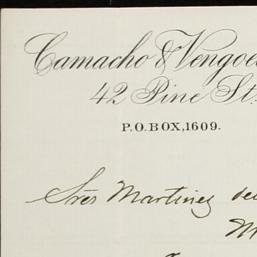 Camacho & Vengoe
42 Pine St.
P.O. BOX, 1609.
Sres Martinez de